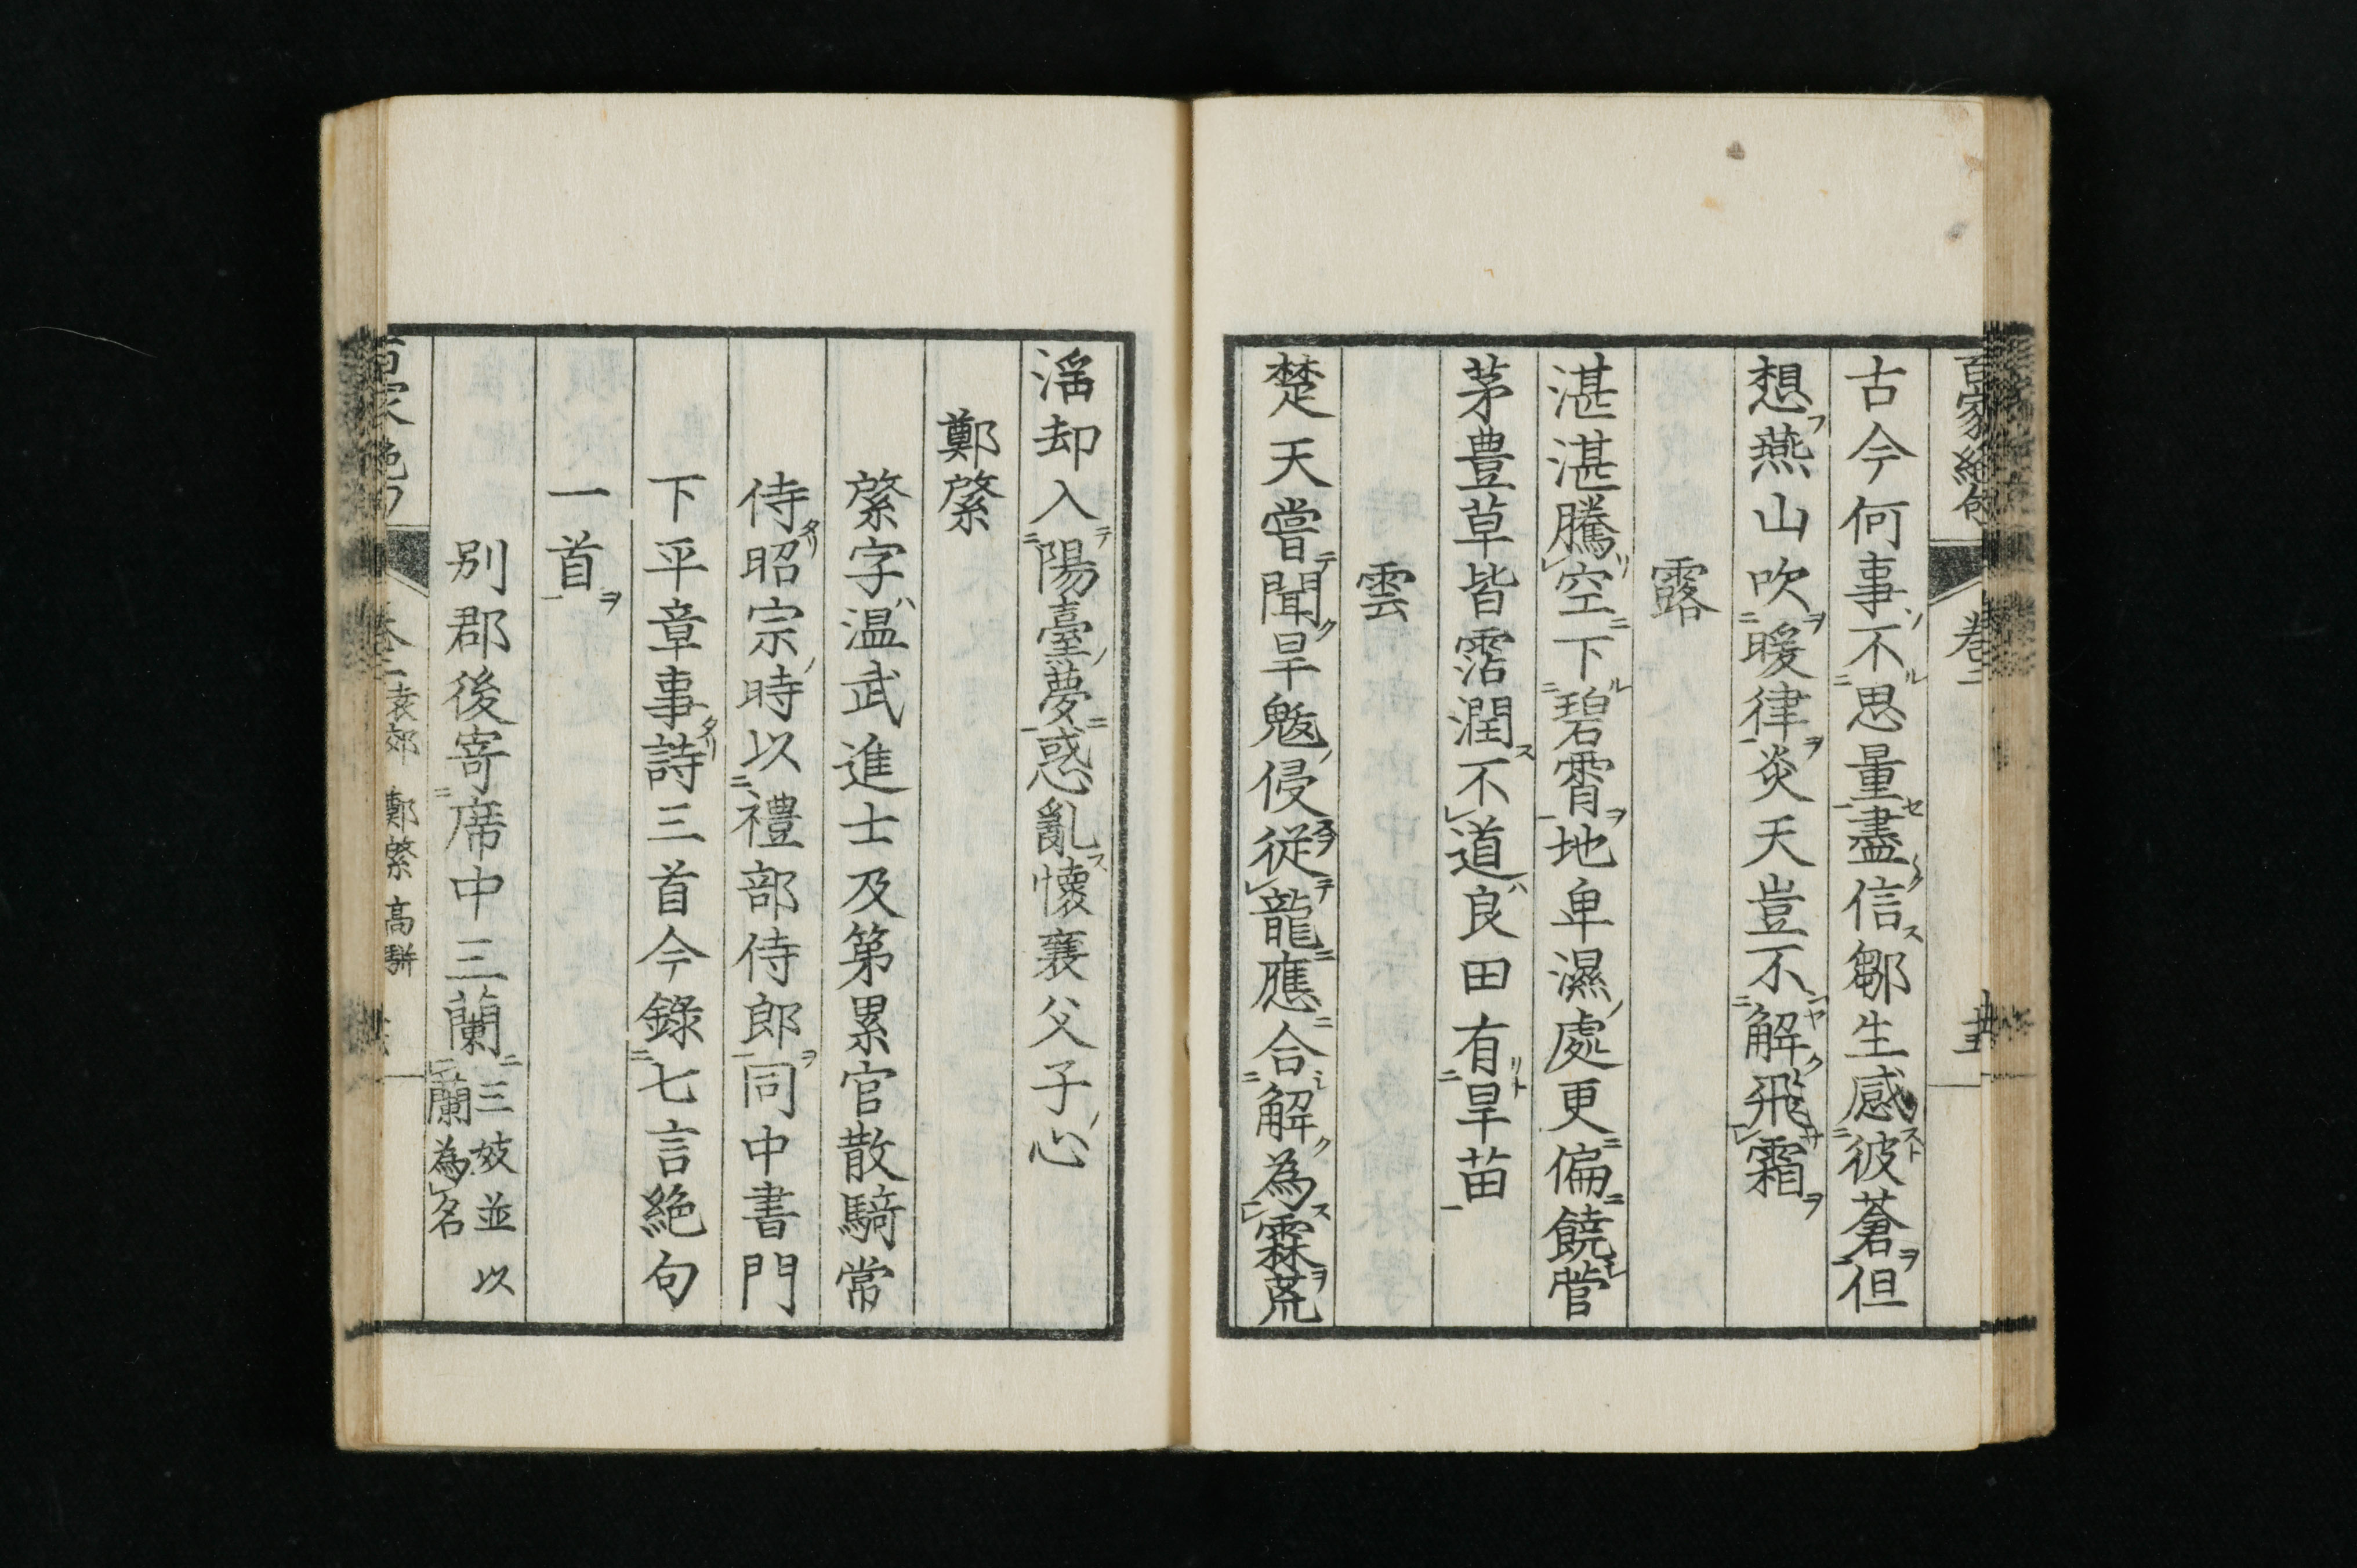 百家絶句 卷二
古今何事不思量盡信鄒生感彼蒼但
想燕山吹暖律炎天豈不解飛霜
露
湛湛騰空下碧霄地卑濕處更偏饒菅
茅豊草皆霑潤不道良田有旱苗
雲
楚天嘗聞旱魃侵從龍應合解為霖荒
淫却入陽臺夢惑亂懷襄父子心
鄭綮
綮字温武進士及第累官散騎常
侍昭宗時以禮部侍郎同中書門
下平章事詩三首今錄七言絶句
一首
別郡後寄席中三蘭三妓並以
蘭為名
百家絶句 卷二 袁郊 鄭綮 高駢